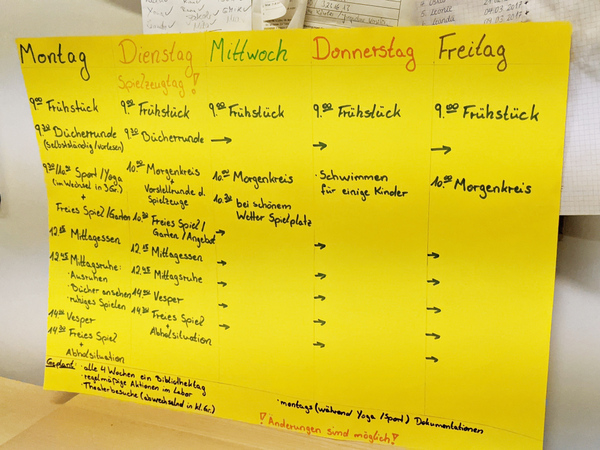 Montag
9.00 Frühstück
9.30 Bücherrunde
(selbstständig/vorlesen)
Sport/Yoga
(im Wechsel in 3Gr.)
+
Freies Spiel/Garten
Mittagessen
Mittagsruhe:
·Ausruhen
·Bücher ansehen
·ruhiges Spielen
Vesper
14.30 Freies Spiel
+
Abholsituation
Dienstag
Spielzeugtag!
9.00 Frühstück
9.30 Bücherrunde
Morgenkreis
+
Vorstellrunde d.
Spielzeuge
10.30 Freies Spiel/
Garten/Angebot
Mittagessen
Mittagsruhe
Vesper
14.30 Freies Spiel
Abholsituation
Mittwoch
9.00 Frühstück
→
Morgenkreis
10.30 bei schönem
Wetter Spielplatz
→
→
→
→
→
→
Donnerstag
9.00 Frühstück
→
·Schwimmen
für einige Kinder
→
→
→
→
→
Freitag
9.00 Frühstück
→
Morgenkreis
→
→
→
→
→
Geplant: ·alle 4 Wochen ein Bibliothekstag
·regelmäßige Aktionen im Labor
·Theaterbesuche (abwechselnd in kl. Gr.)
·montags (während Yoga/Sport) Dokumentationen
! Änderungen sind möglich!